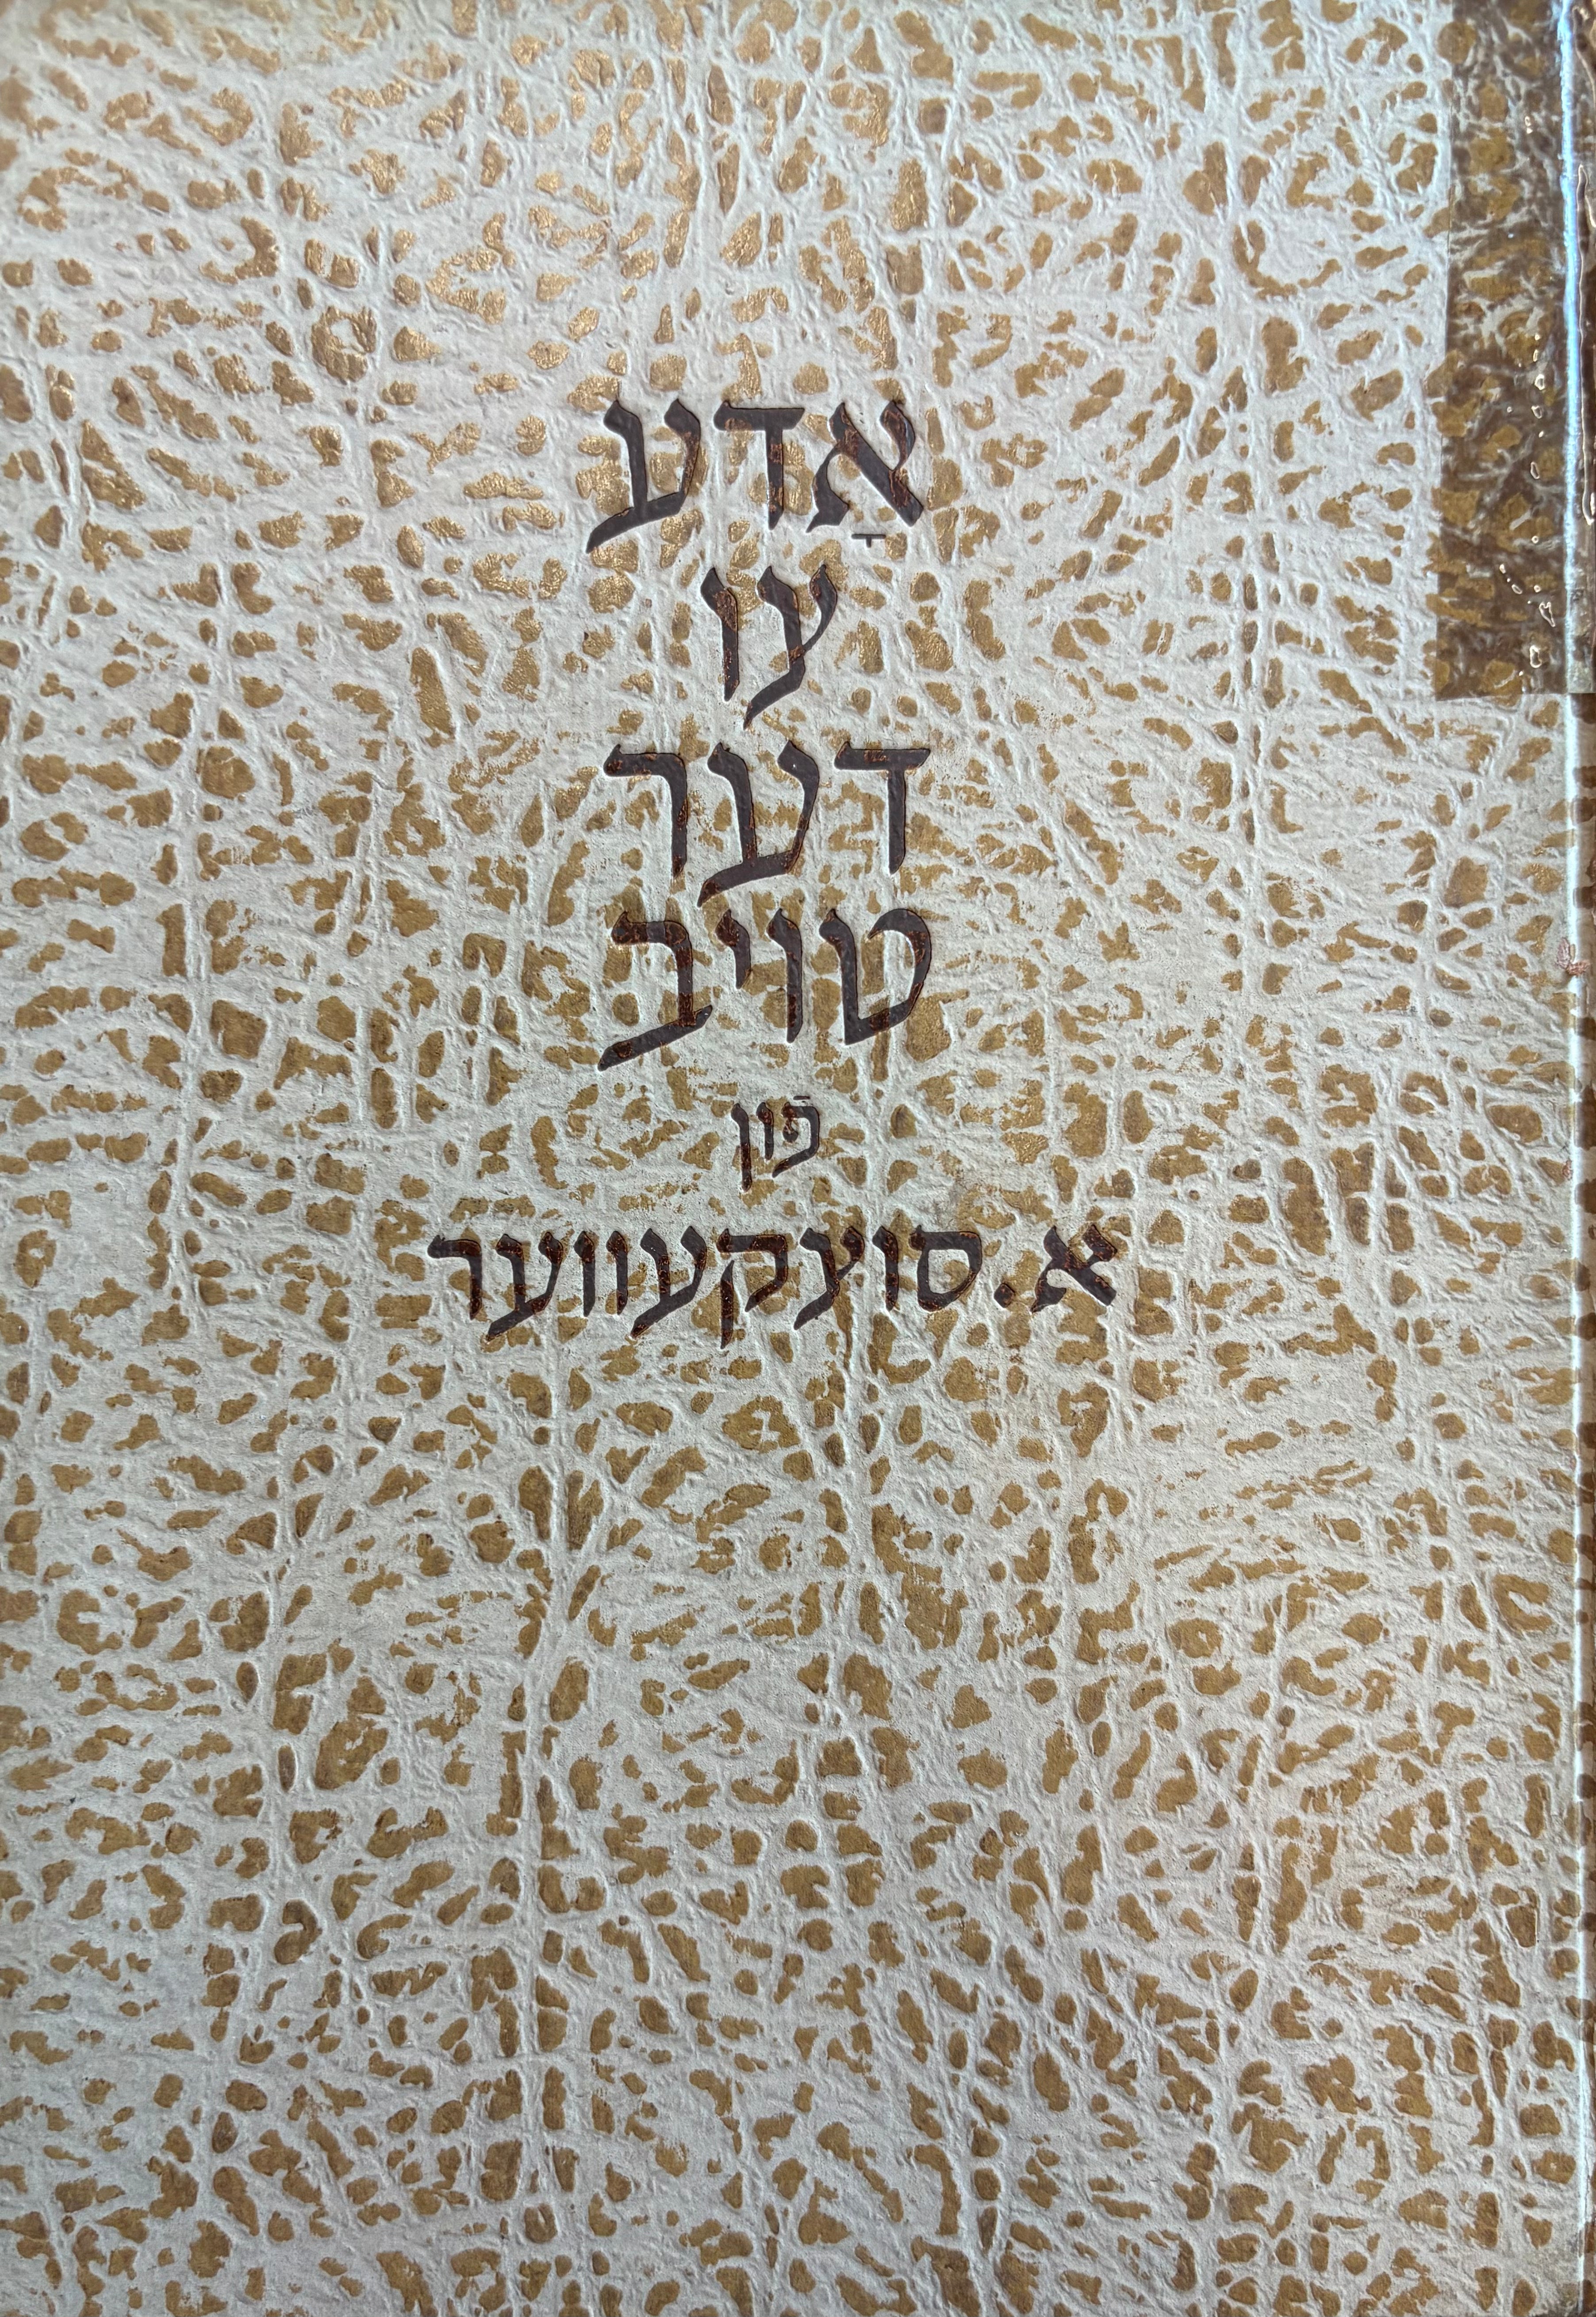 אָדע
צו
דער
טויב
פֿון
א. סוצקעווער